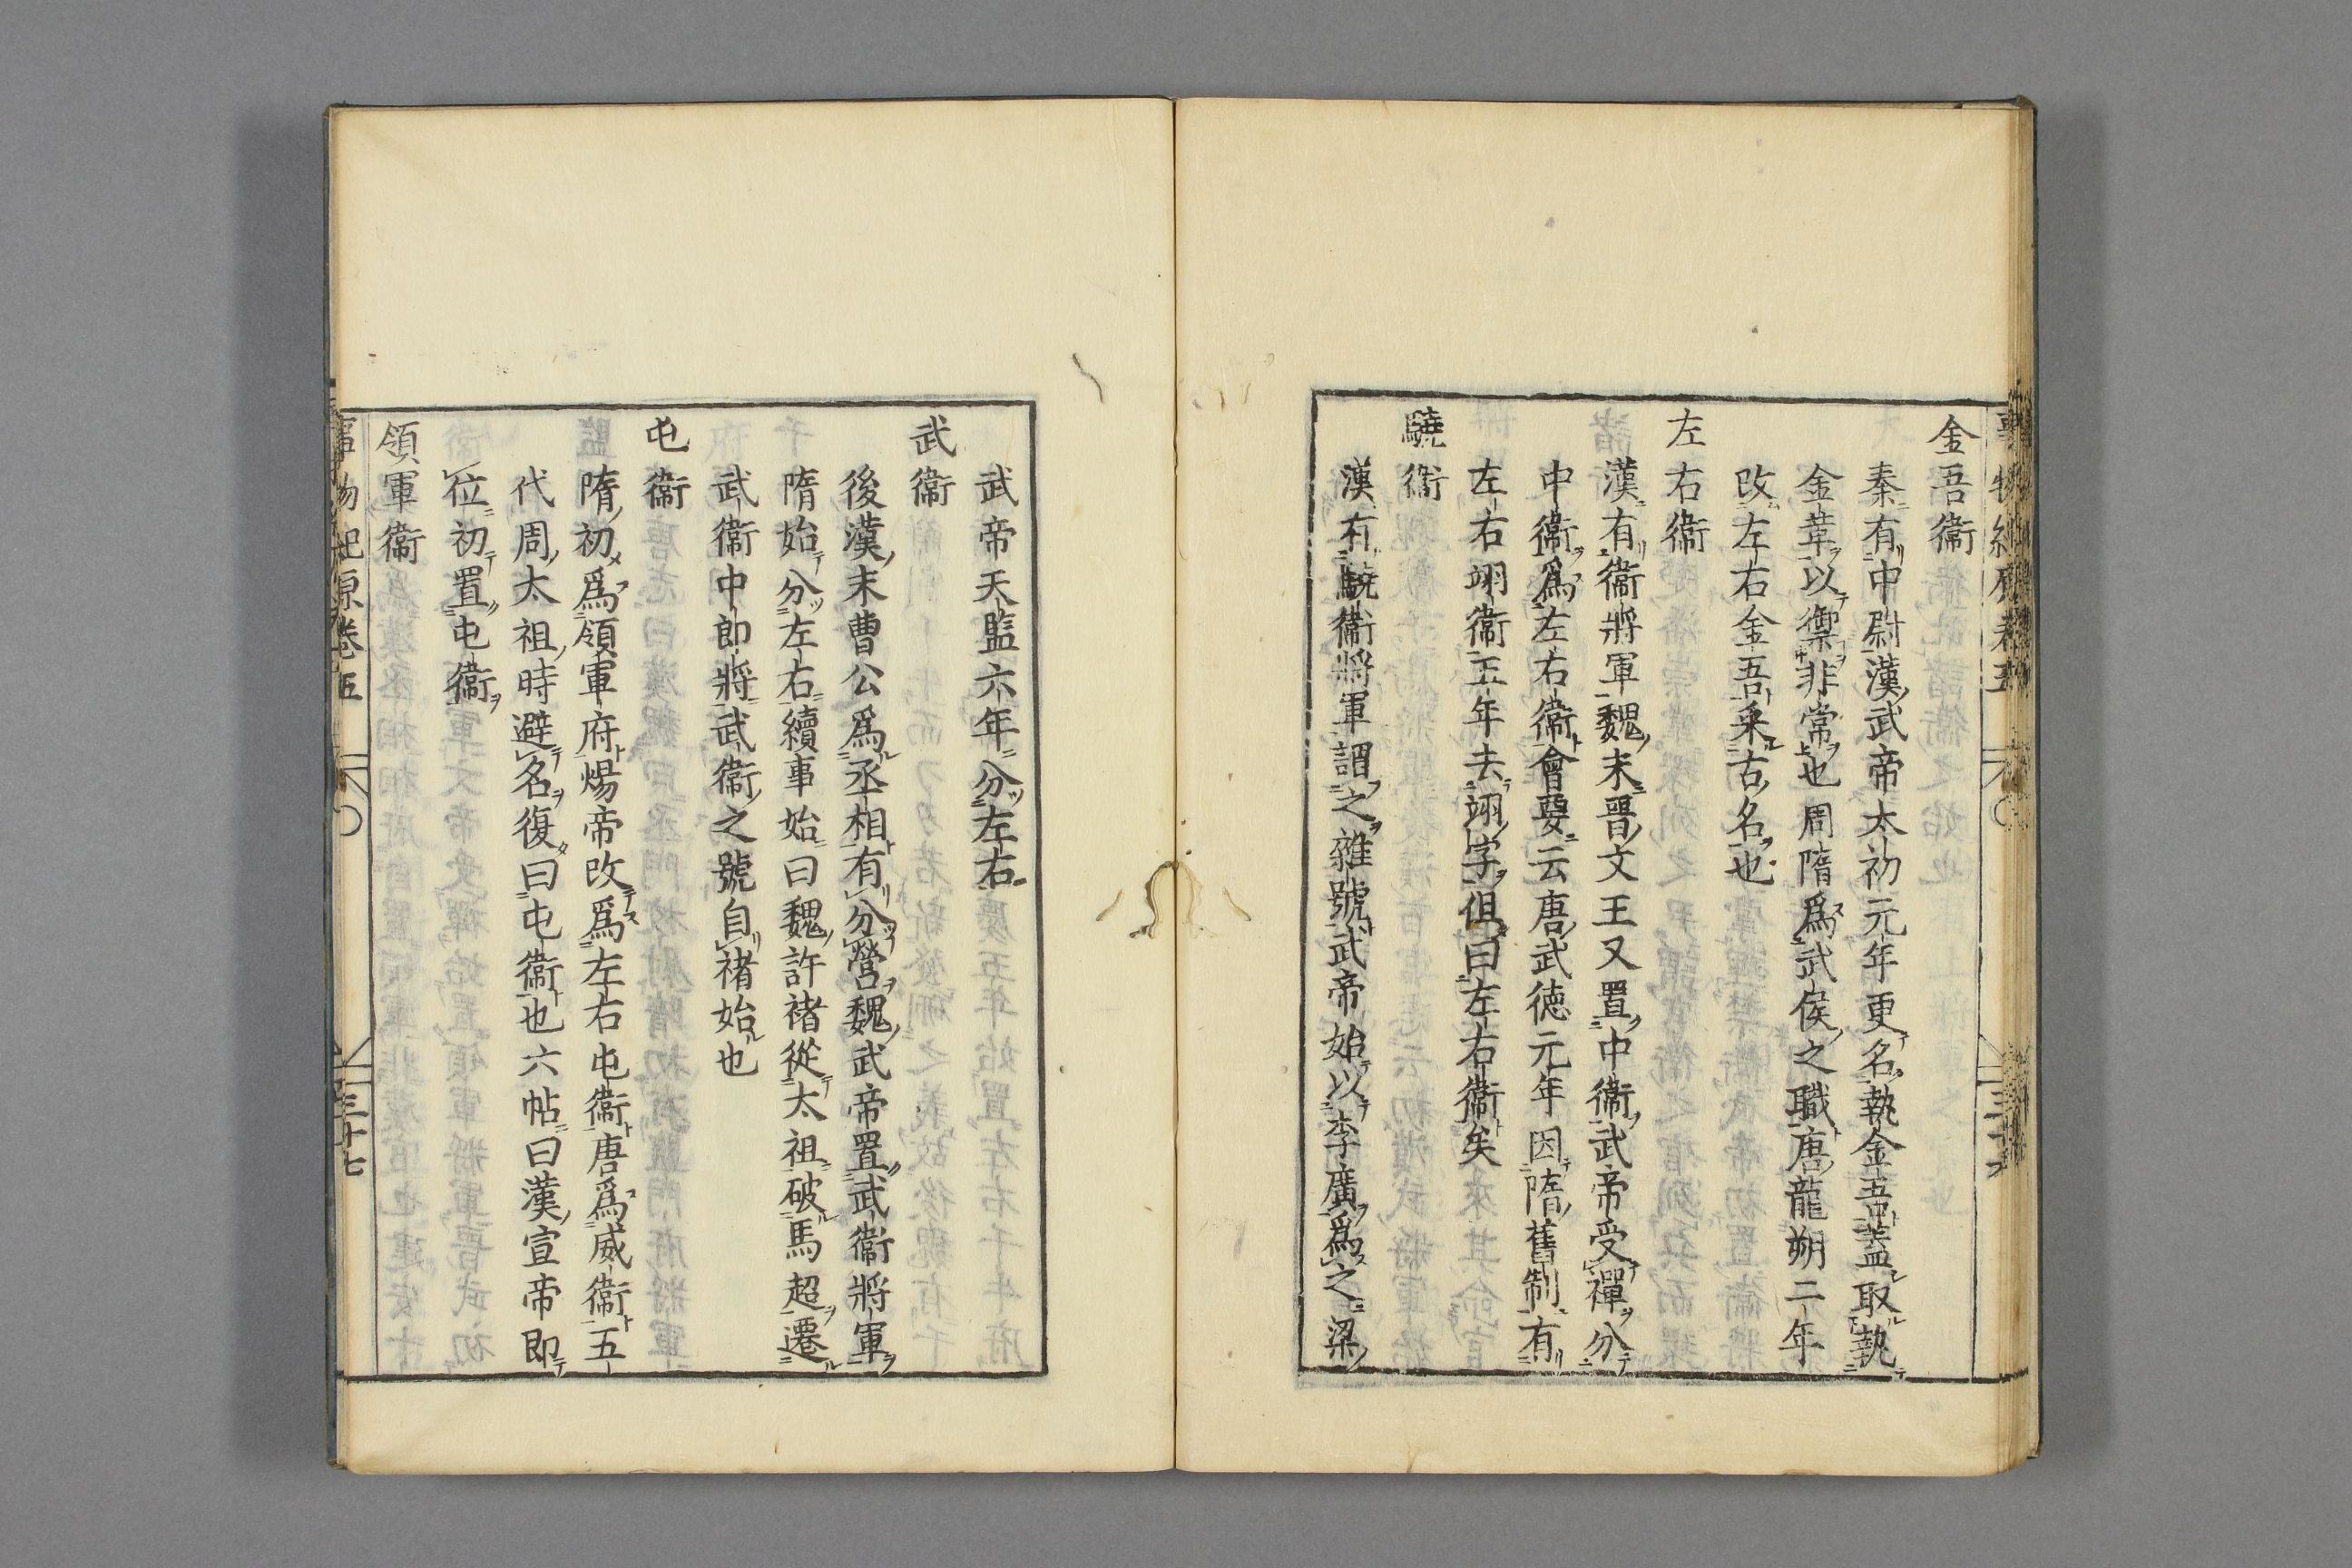 金吾衞
秦有中尉漢武帝太初元年更名執金吾蓋取執
金革以禦非常也周隋爲武侯之職唐龍朔二年
改左右金吾采古名也
左右衞
漢有衞將軍魏末晉文王又置中衞武帝受禪分
中衞爲左右衞會要云唐武徳元年因隋舊制有
左右翊衞五年去翊字但曰左右衞矣
驍衞
漢有驍衞將軍謂之雜號武帝始以李廣爲之梁
武帝天監六年分左右
武衞
後漢末曹公爲丞相有分營魏武帝置武衞將軍
隋始分左右續事始曰魏許褚從太祖破馬超遷
武衞中郎將武衞之號自褚始也
屯衞
隋初爲領軍府煬帝改爲左右屯衞唐爲威衞五
代周太祖時避名復曰屯衞也六帖曰漢宣帝即
位初置屯衞
領軍衞
事物紀原卷五
三十七